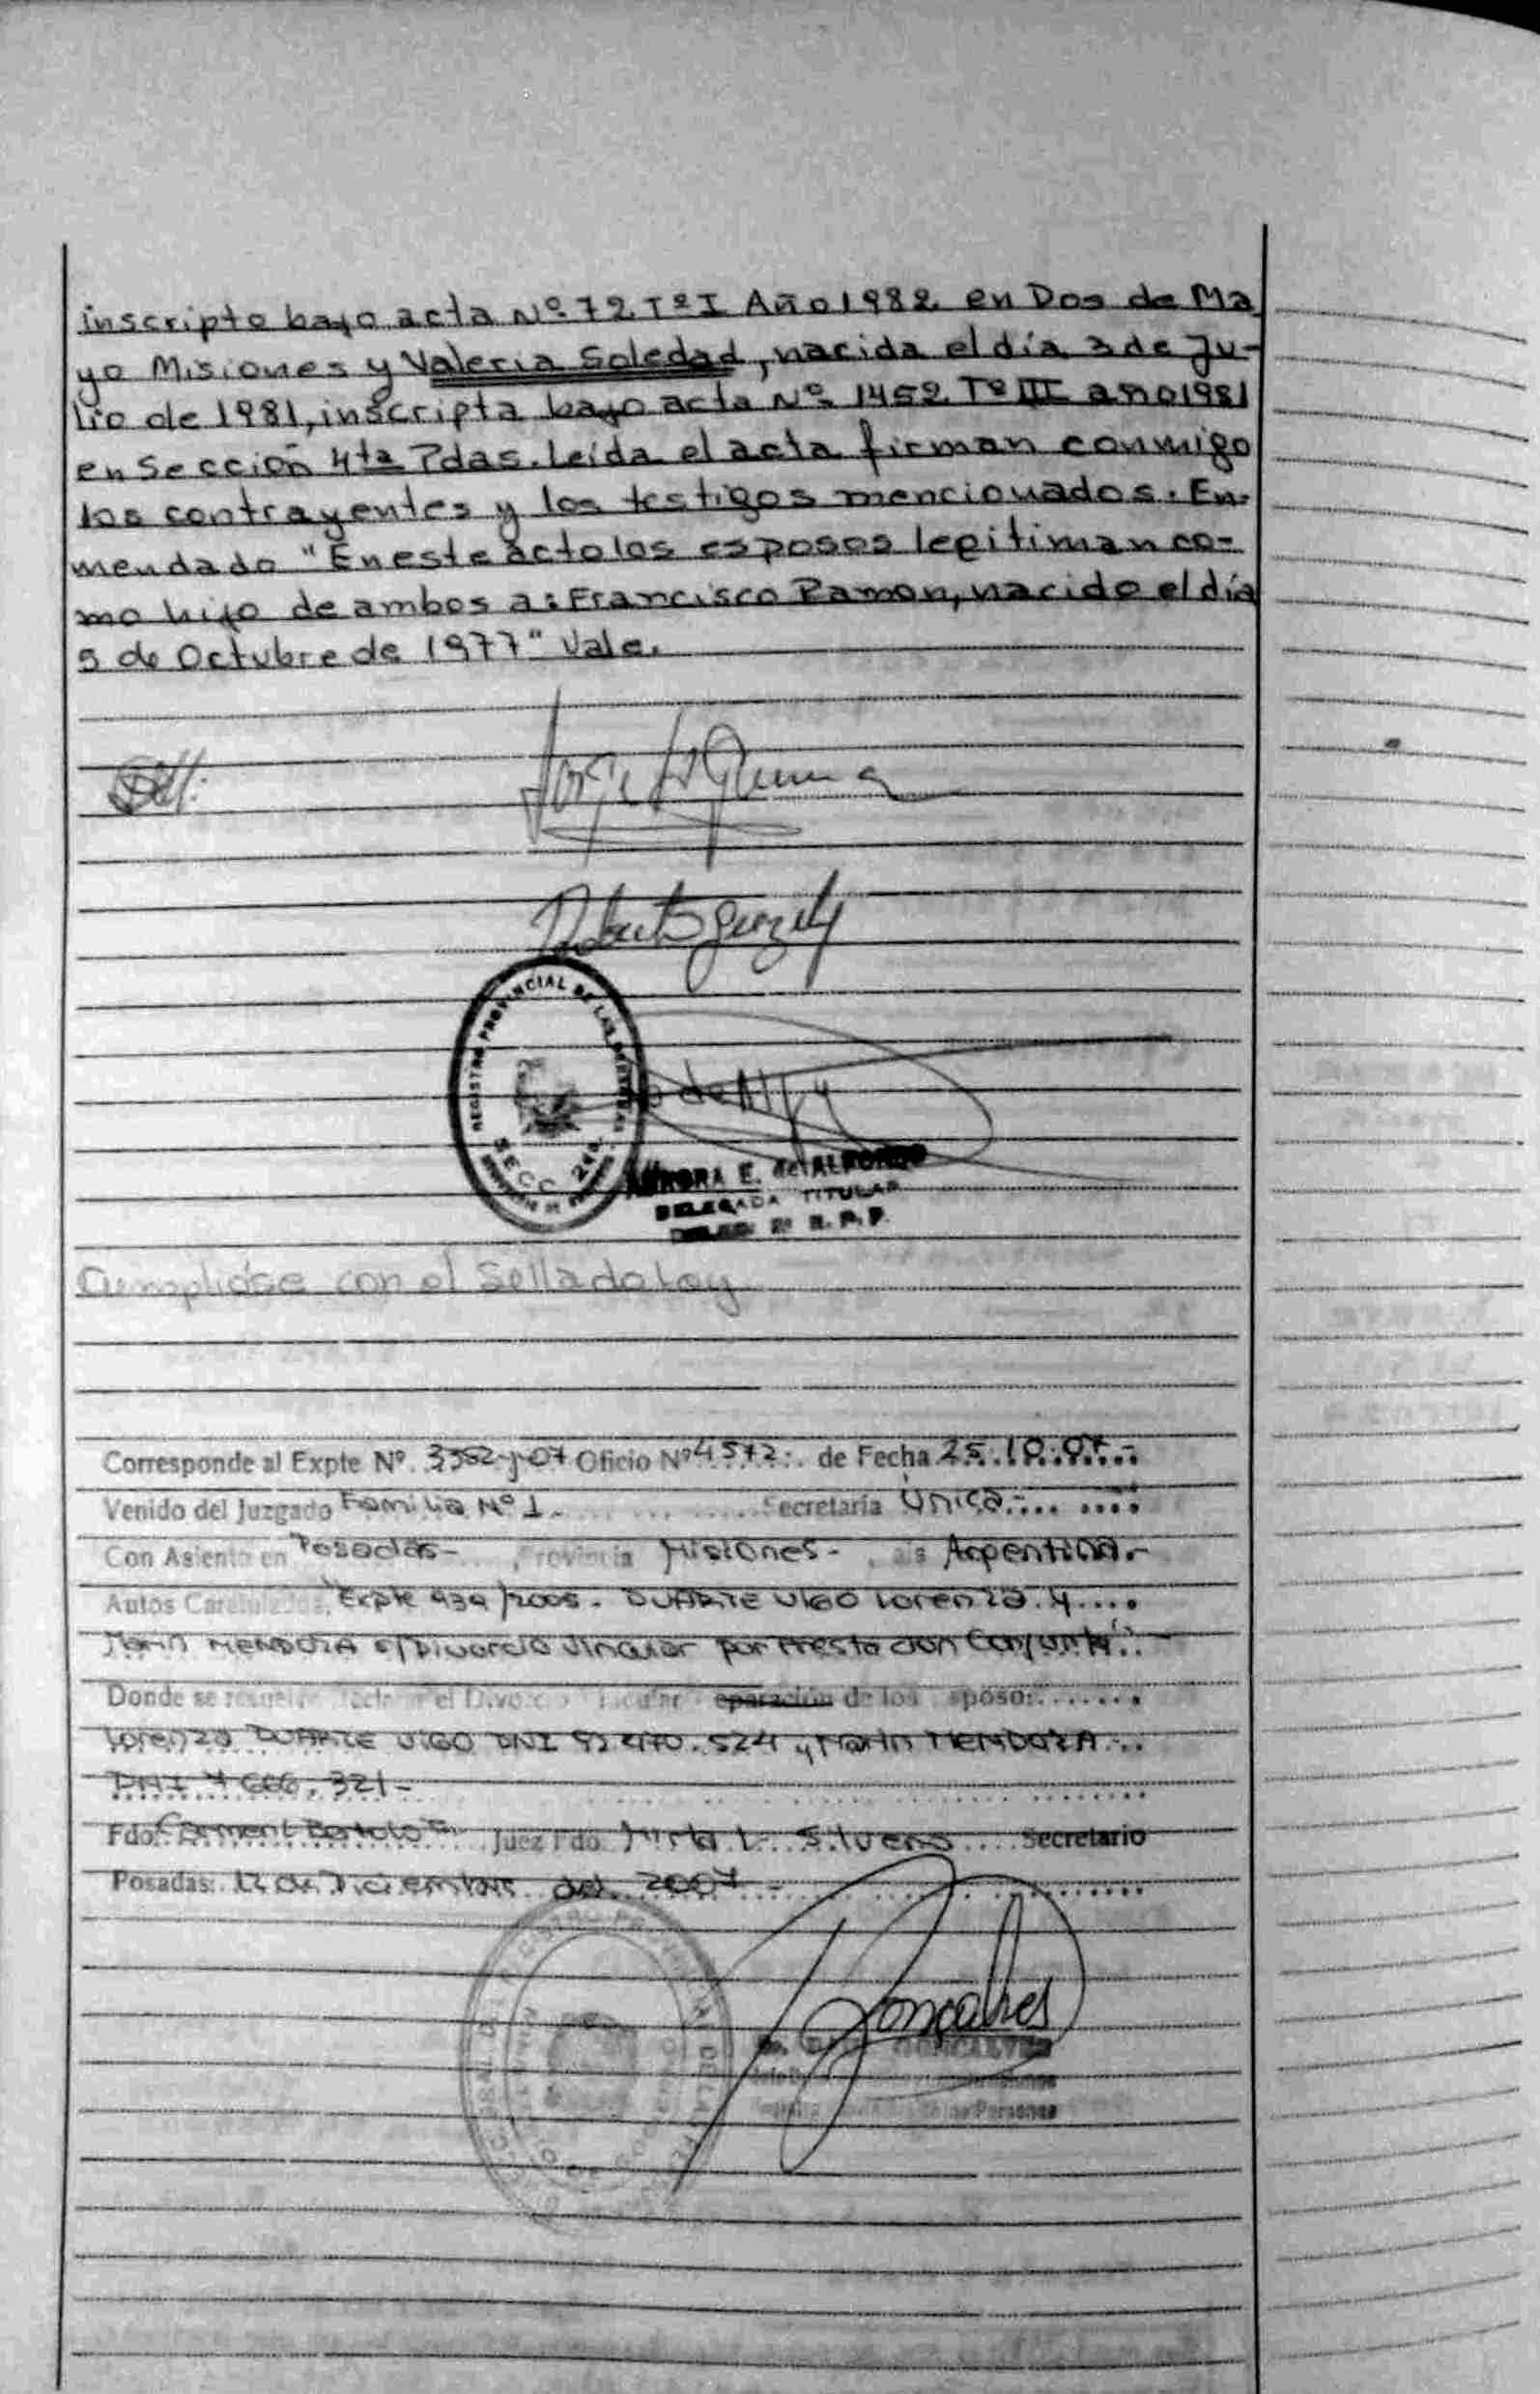 inscripto bajo acta Nº 72 Tº I Año 1982 en Dos de Ma
yo Misiones y Valeria Soledad, nacida el día 3 de Ju-
lio de 1981, inscripta bajo acta Nº 1452 Tº III año 1981
en Sección 4ta Pdas. Leída el acta firman conmigo
los contrayentes y los testigos mencionados. En-
mendado "En este acto los esposos legitiman co-
mo hijo de ambos a: Francisco Ramon, nacido el día
5 de Octubre de 1977" Vale.
REGISTRO PROVINCIAL DE LAS PERSONAS
SECC. 2da
AURORA E. de
DELEGADA TITULAR
R. P. P.
Cumplióse con el Sellado Ley
Corresponde al Expte Nº 3352-J-07 Oficio Nº 4572 de Fecha 25.10.07.-
Venido del Juzgado Familia Nº 1. Secretaría Única.-
Con Asiento en Posadas- Provincia Misiones- Argentina.-
Autos Caratulados, Expte 939/2005. DUARTE VIGO Lorenza. y
MENDOZA s/Divorcio Vincular por Presentacion Conjunta".-
Donde se resuelve declarar el Divorcio Vincular separación de los esposos
DUARTE VIGO DNI 92.470.524 y Martin MENDOZA
DNI 7.666.321-
Fdo. Juez Fdo. Mirta L. Secretario
Posadas: 12 de Diciembre del 2007-
Goncalves
GONCALVES
Personas